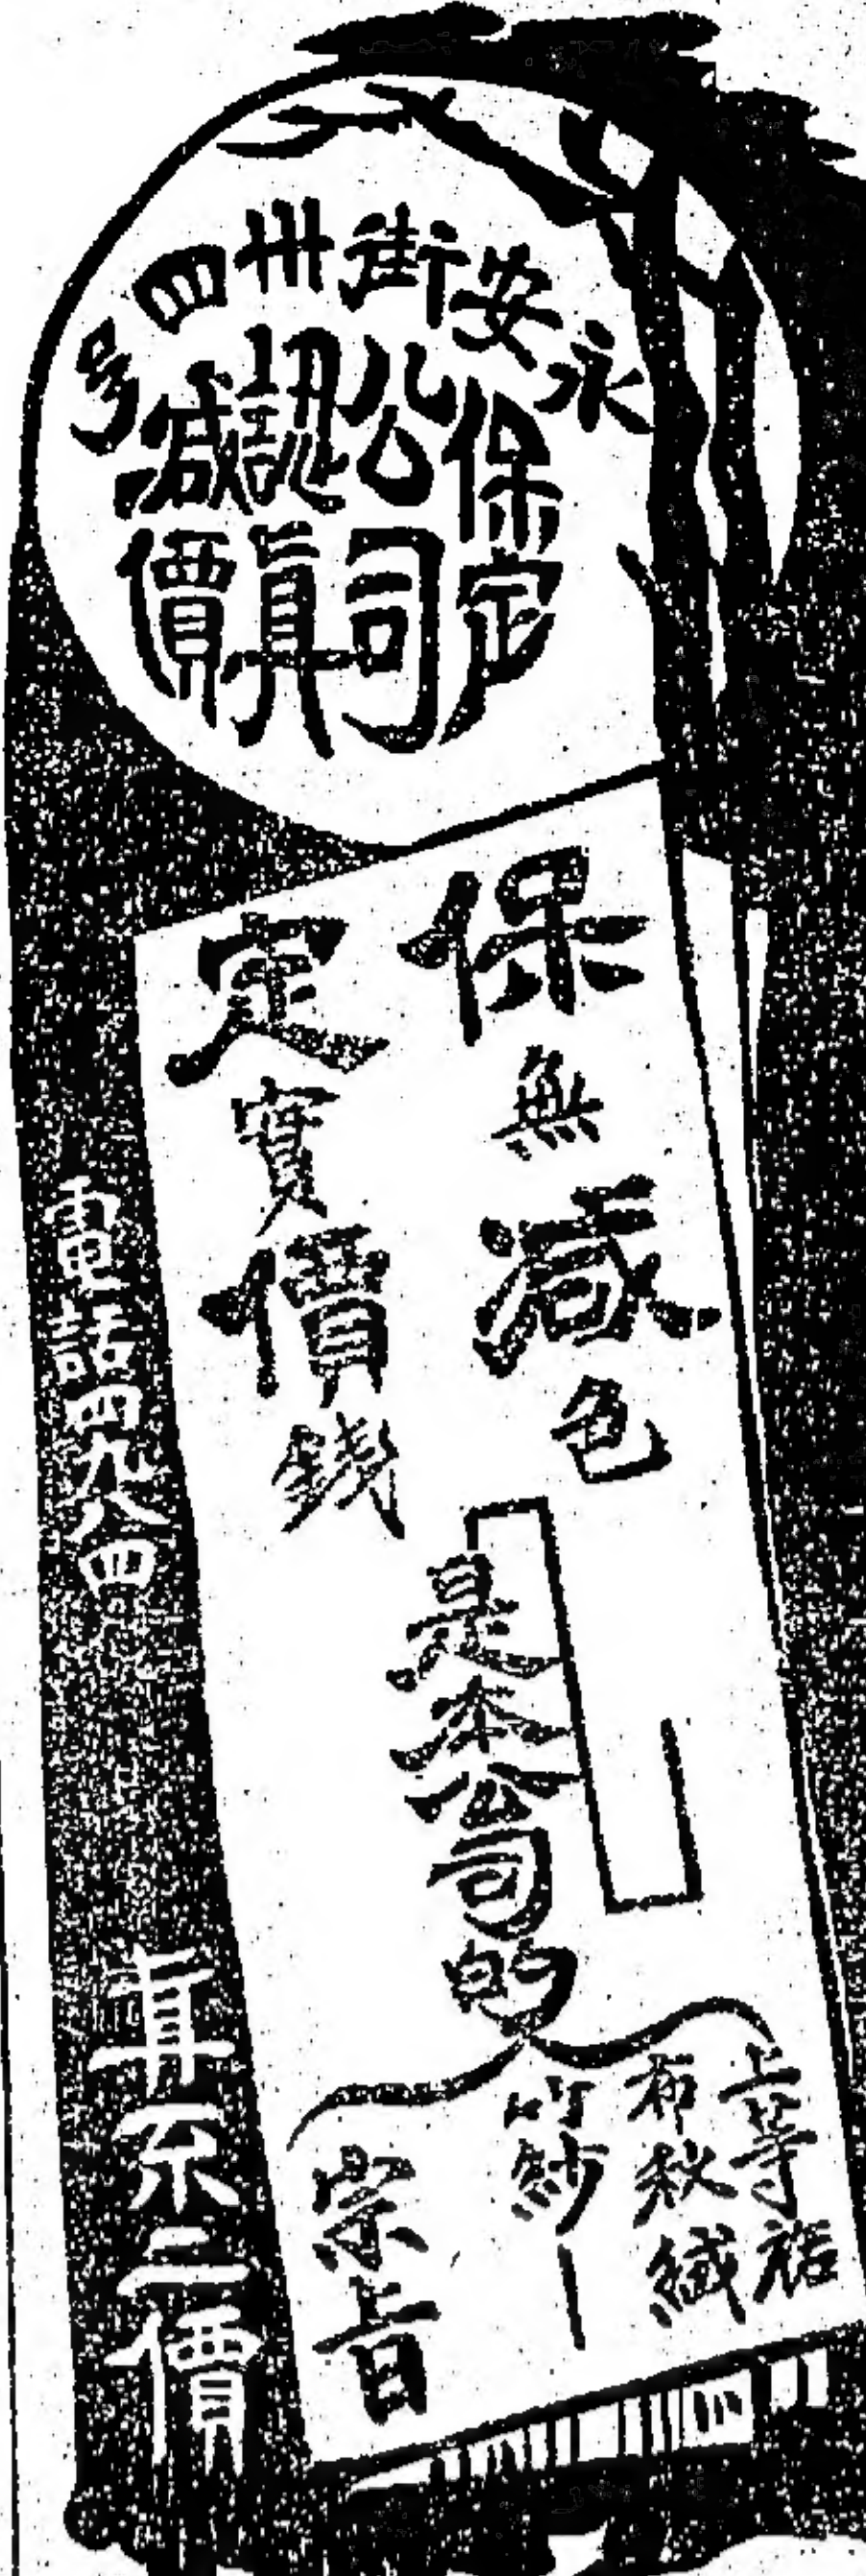 永安街卅四号
保定
公司
認真
減價
保無減色
定實價錢
是本公司的
上等
布秋絨
紗
宗旨
電話四九八四
真不二價